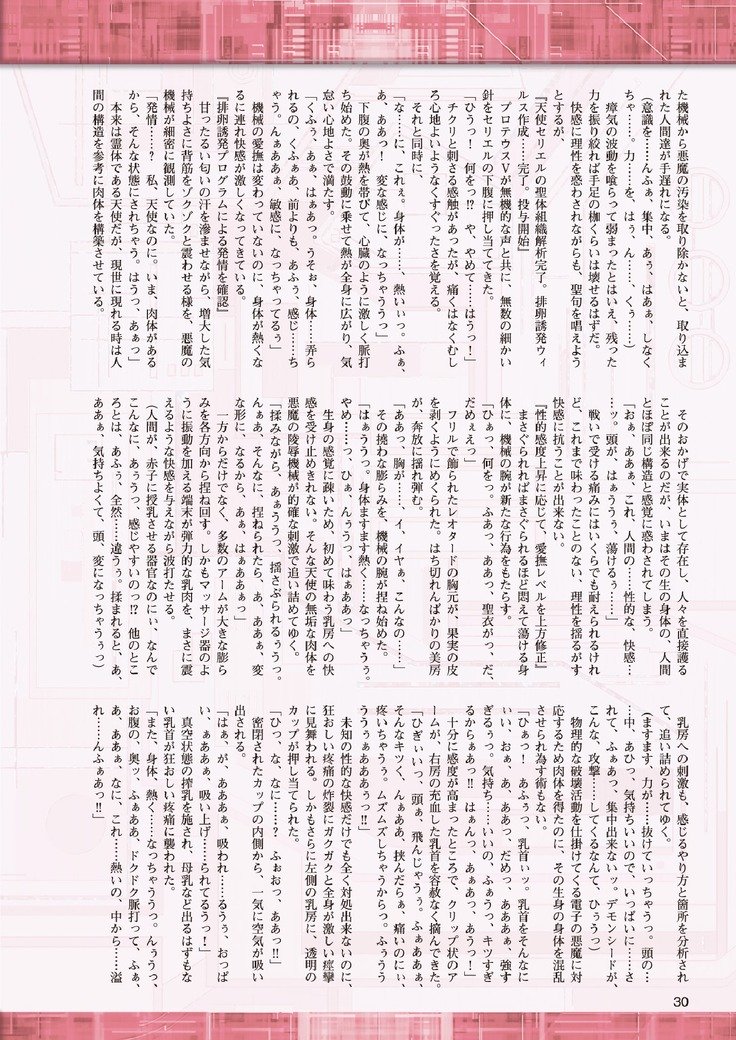 た機械から悪魔の汚染を取り除かないと、取り込ま
れた人間達が手遅れになる。
（意識を……んふぁ、集中、あぅ、はあぁ、しなく
ちゃ……。力……を、はぅ、ん……、くぅ……）
　瘴気の波動を喰らって弱まったとはいえ、残った
力を振り絞れば手足の枷くらいは壊せるはずだ。
　快感に理性を惑わされながらも、聖句を唱えよう
とするが
『天使セリエルの聖体組織解析完了。排卵誘発ウィ
ルス作成……完了。投与開始』
　プロテウスVが無機的な声と共に、無数の細かい
針をセリエルの下腹に押し当ててきた。
「ひうっ！　何をっ!?　や、やめて……はうっ！」
　チクリと刺さる感触があったが、痛くはなくむし
ろ心地よいようなくすぐったさを覚える。
　それと同時に、
「な……に、これぇ。身体が……、熱いぃっ。ふぁ、
あ、ああっ！　変な感じに、なっちゃううっ」
　下腹の奥が熱を帯びて、心臓のように激しく脈打
ち始めた。その鼓動に乗せて熱が全身に広がり、気
怠い心地よさで満たす。
「くふぅ、あぁ、はぁぁっ。うそぉ、身体……弄ら
れるの、くふぁあ、前よりも、あふぅ、感じ……ち
ゃう。んぁああぁ、敏感に、なっちゃってるぅ」
　機械の愛撫は変わっていないのに、身体が熱くな
るに連れ快感が激しくなってきている。
『排卵誘発プログラムによる発情を確認』
　甘ったるい匂いの汗を滲ませながら、増大した気
持ちよさに背筋をゾクゾクと震わせる様を、悪魔の
機械が細密に観測していた。
「発情……？　私、天使なのに。いま、肉体がある
から、そんな状態にされちゃう。はうっ、あぁっ」
　本来は霊体である天使だが、現世に現れる時は人
間の構造を参考に肉体を構築させている。
　そのおかげで実体として存在し、人々を直接護る
ことが出来るのだが、いまはその生の身体の、人間
とほぼ同じ構造と感覚に惑わされてしまう。
「おぁ、ああぁ、これ、人間の……性的な、快感…
…ッ。頭が、はぁううぅ、蕩けるぅ……」
　戦いで受ける痛みにはいくらでも耐えられるけれ
ど、これまで味わったことのない、理性を揺るがす
快感に抗うことが出来ない。
『性的感度上昇に応じて、愛撫レベルを上方修正』
　まさぐられればまさぐられるほど悶えて蕩ける身
体に、機械の腕が新たな行為をもたらす。
「ひぁっ、何をっ。ふあっ、ああっ、聖衣がっ、だ、
だめぇえっ」
　フリルで飾られたレオタードの胸元が、果実の皮
を剥くようにめくられた。はち切れんばかりの美房
が、奔放に揺れ弾む。
「ああっ、胸が……イ、イヤぁ、こんなの……」
　その撓わな膨らみを、機械の腕が捏ね始めた。
「はぁううっ。身体ますます熱く……なっちゃうぅ。
やめ……っ、ひぁ、んぅうっ、はぁああっ」
　生身の感覚に疎いため、初めて味わう乳房への快
感を受け止めきれない。そんな天使の無垢な肉体を
悪魔の陵辱機械が的確な刺激で追い詰めてゆく。
「揉みながら、あぁううっ、揺さぶられるぅうっ。
んぁあ、そんなに、捏ねられたら、あ、ああぁ、変
な形に、なるから、あぁ、はぁああぁっ」
　一方からだけでなく、多数のアームが大きな膨ら
みを各方向から捏ね回す。しかもマッサージ器のよ
うに振動を加える端末が弾力的な乳肉を、まさに震
えるような快感を与えながら波打たせる。
（人間が、赤子に授乳させる器官なのにぃ、なんで
こんなに、あぅうっ、感じやすいのっ!?　他のとこ
ろとは、あふぅ、全然……違うぅ。揉まれると、あ、
ああぁ、気持ちよくて、頭、変になっちゃうぅっ）
　乳房への刺激も、感じるやり方と箇所を分析され
て、追い詰められてゆく。
（ますます、力が……抜けていっちゃうっ。頭の…
…中、あひっ、気持ちいいので、いっぱいに……さ
れて、ふぁあっ、集中出来ないッ。デモンシードが、
こんな、攻撃……してくるなんて、ひぅうっ）
　物理的な破壊活動を仕掛けてくる電子の悪魔に対
応するため肉体を得たのに、その生身の身体を混乱
させられ為す術もない。
「ひぁっ！　あふぅっ、乳首ぃッ。乳首をそんなに
いい、おぁ、あ、ああっ、だめっ、あああぁ、強す
ぎるぅっ。気持ち……いいの、ふぁうっ、キツすぎ
るからぁあっ!!　はぁんっ、あぁあっ、あうっ！」
　十分に感度が高まったところで、クリップ状のア
ームが、右房の充血した乳首を容赦なく摘んできた。
「ひぎぃいっ、頭ぁ、飛んじゃうぅ。ふぁああぁ、
そんなキツく、んぁああ、挟んだらぁ、痛いのにぃ、
疼いちゃうぅ。ムズムズしちゃうからっ。ふぅうう
ううぅぁあああぅっ!!」
　未知の性的な快感だけでも全く対処出来ないのに、
狂おしい疼痛の炸裂にガクガクと全身が激しい痙攣
に見舞われる。しかもさらに左側の乳房に、透明の
カップが押し当てられた。
「ひっ、な、なに……？　ふぉおっ、ああっ!!」
　密閉されたカップの内側から、一気に空気が吸い
出される。
「はぁ、が、あああぁ、吸われ……るうぅ、おっぱ
い、ぁああぁ、吸い上げ……られてるうっ！」
　真空状態の搾乳を施され、母乳など出るはずもな
い乳首が狂おしい疼痛に襲われた。
「また、身体、熱く……なっちゃううっ。んぅうっ、
お腹の、奥ッ、ふぁああ、ドクドク脈打って、ふぁ、
あ、ああぁ、なに、これ……熱いの、中から……溢
れ……んふぁあっ!!」
30